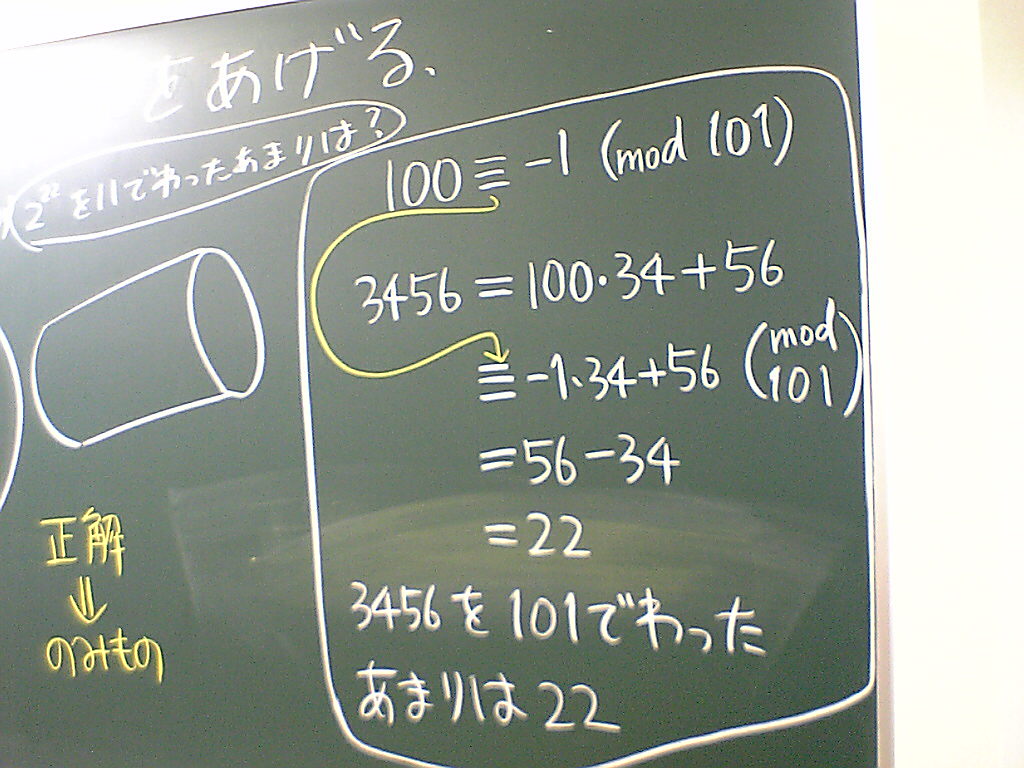 をあげる、
を11でわったあまりは?
100≡-1 (mod 101)
3456=100・34+56
≡-1・34+56 (mod 101)
=56-34
=22
3456を101でわった
あまりは22
正解
⇓
のみもの